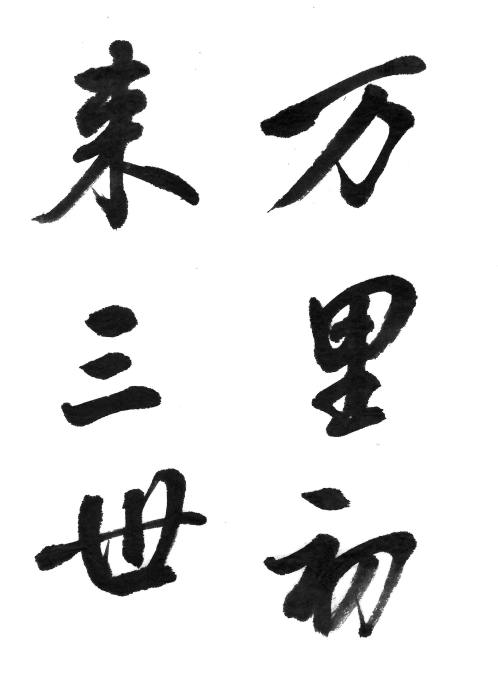 万里初
来三世